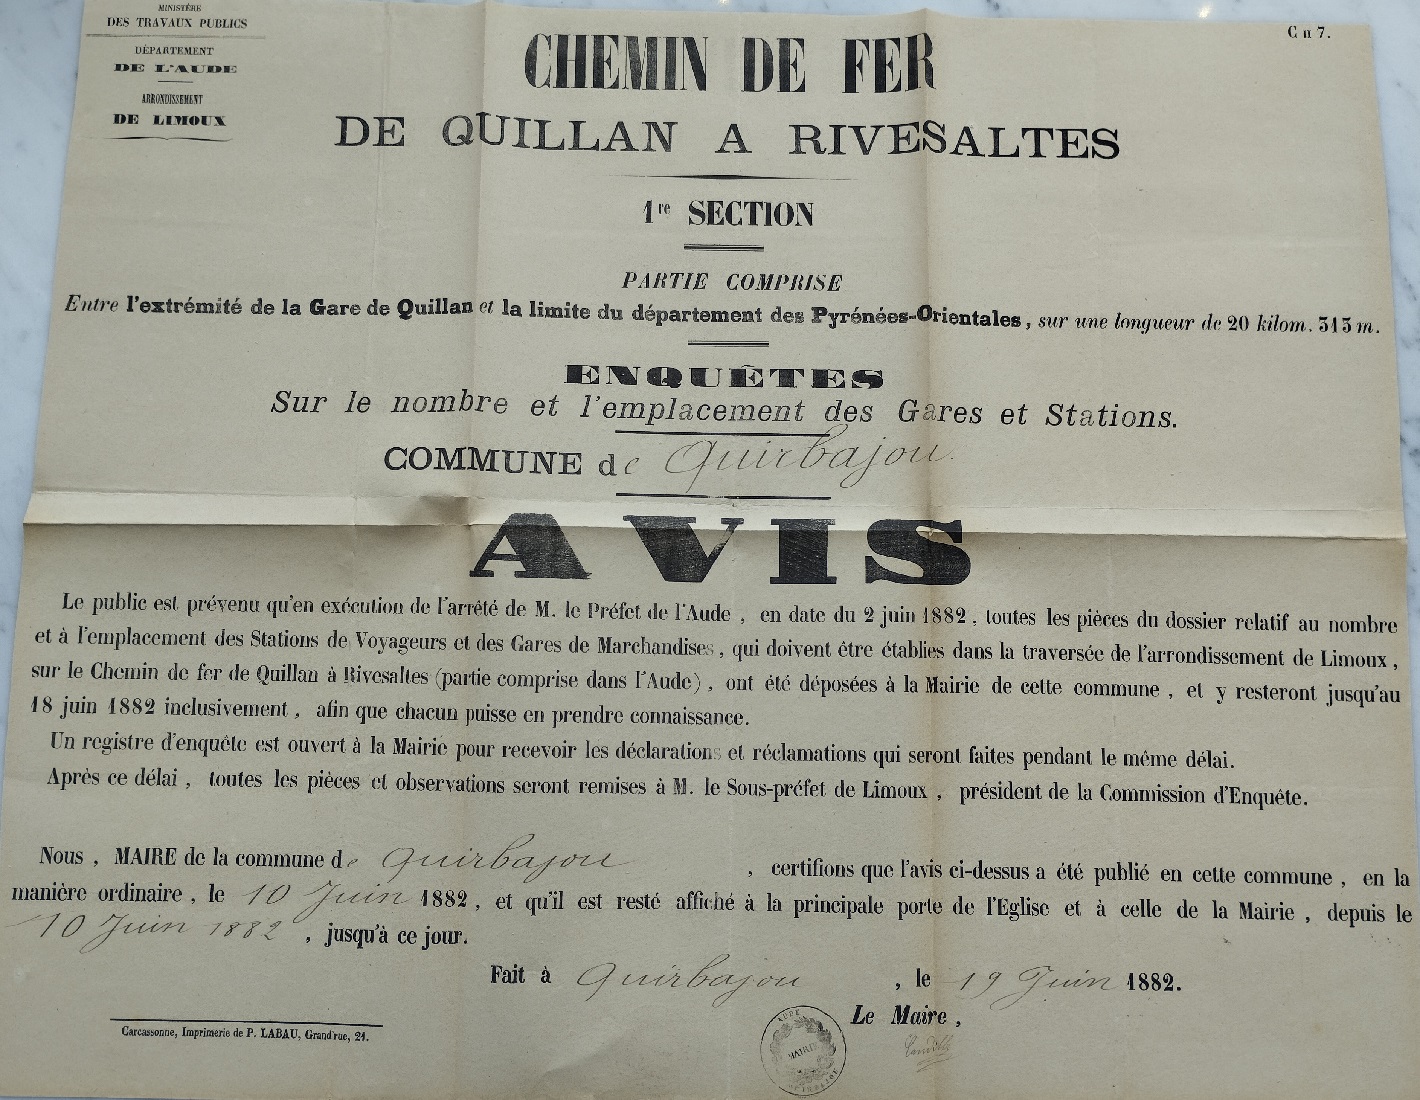 MINISTÈRE
DES TRAVAUX PUBLICS
DÉPARTEMENT
DE L'AUDE
ARRONDISSEMENT
DE LIMOUX
C n 7.
CHEMIN DE FER
DE QUILLAN A RIVESALTES
1re SECTION
PARTIE COMPRISE
Entre l'extrémité de la Gare de Quillan et la limite du département des Pyrénées-Orientales, sur une longueur de 20 kilom. 313 m.
ENQUÊTES
Sur le nombre et l'emplacement des Gares et Stations.
COMMUNE de Quirbajou.
AVIS
Le public est prévenu qu'en exécution de l'arrêté de M. le Préfet de l'Aude, en date du 2 juin 1882, toutes les pièces du dossier relatif au nombre
et à l'emplacement des Stations de Voyageurs et des Gares de Marchandises, qui doivent être établies dans la traversée de l'arrondissement de Limoux,
sur le Chemin de fer de Quillan à Rivesaltes (partie comprise dans l'Aude), ont été déposées à la Mairie de cette commune, et y resteront jusqu'au
18 juin 1882 inclusivement, afin que chacun puisse en prendre connaissance.
Un registre d'enquête est ouvert à la Mairie pour recevoir les déclarations et réclamations qui seront faites pendant le même délai.
Après ce délai, toutes les pièces et observations seront remises à M. le Sous-préfet de Limoux, président de la Commission d'Enquête.
Nous, MAIRE de la commune de Quirbajou, certifions que l'avis ci-dessus a été publié en cette commune, en la
manière ordinaire, le 10 Juin 1882, et qu'il est resté affiché à la principale porte de l'Eglise et à celle de la Mairie, depuis le
10 Juin 1882, jusqu'à ce jour.
Fait à Quirbajou, le 19 Juin 1882.
Le Maire,
AUDE
MAIRIE
QUIRBAJOU
Carcassonne, Imprimerie de P. LABAU, Grand'rue, 21.